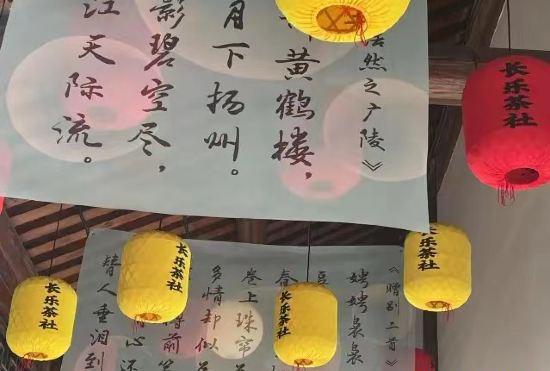 浩然之广陵》
黄鹤楼，
月下扬州。
影碧空尽，
江天际流。
《赠别二首
娉娉袅袅
豆
春
卷上珠帘
多情却似
前
心还
替人垂泪到
长乐茶社
长乐茶社
长乐茶社
长乐茶社
长乐茶社